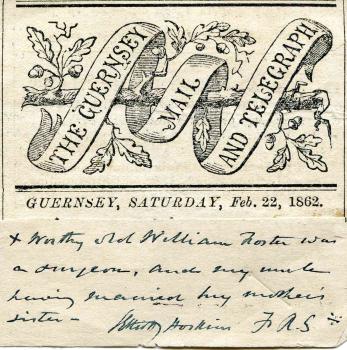 THE GUERNSEY
MAIL
AND TELEGRAPH
GUERNSEY, SATURDAY, Feb. 22, 1862.
+ Worthy old William Foster was
a surgeon, and my uncle
having married my mother's
sister – Hoskins F R S